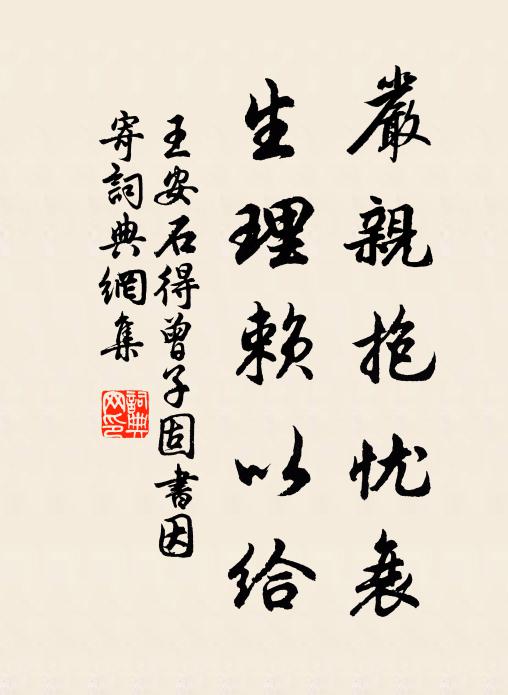 嚴親抱忧衰
生理賴以給
王安石得曾子固書因
寄詞典網集
詞典
网印